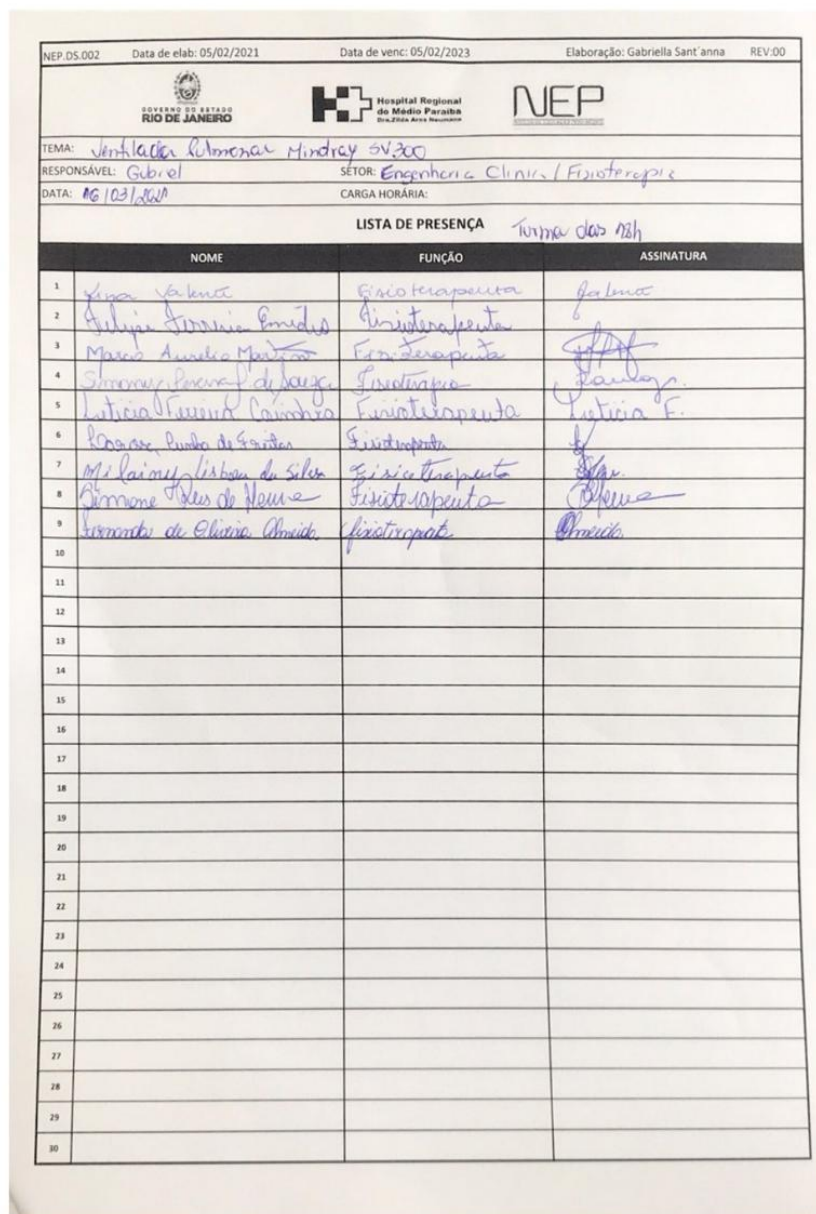 NEP.DS.002 Data de elab: 05/02/2021 Data de venc: 05/02/2023 Elaboração: Gabriella Sant´anna REV:00
GOVERNO DO ESTADO
RIO DE JANEIRO
Hospital Regional
do Médio Paraíba
Dra.Zilda Arns Neumann
NEP
TEMA: Ventilador Pulmonar Mindray SV300
RESPONSÁVEL: Gabriel SETOR: Engenharia Clinica / Fisioterapia
DATA: 16/03/2021 CARGA HORÁRIA:
LISTA DE PRESENÇA Turma das 18h
NOME FUNÇÃO ASSINATURA
1 Valente Fisioterapeuta Valente
2 Felipe Ferreira Emidio Fisioterapeuta
3 Marco Aurelio Martins Fisioterapeuta
4 Simony Pereira de Souza Fisioterapia
5 Leticia Ferreira Coimbra Fisioterapeuta Leticia F.
6 Cunha de Freitas Fisioterapeuta
7 Milainy Lisboa da Silva Fisioterapeuta
8 Simone Reis de Fisioterapeuta
9 Fernanda de Oliveira Almeida fisioterapeuta Almeida
10
11
12
13
14
15
16
17
18
19
20
21
22
23
24
25
26
27
28
29
30